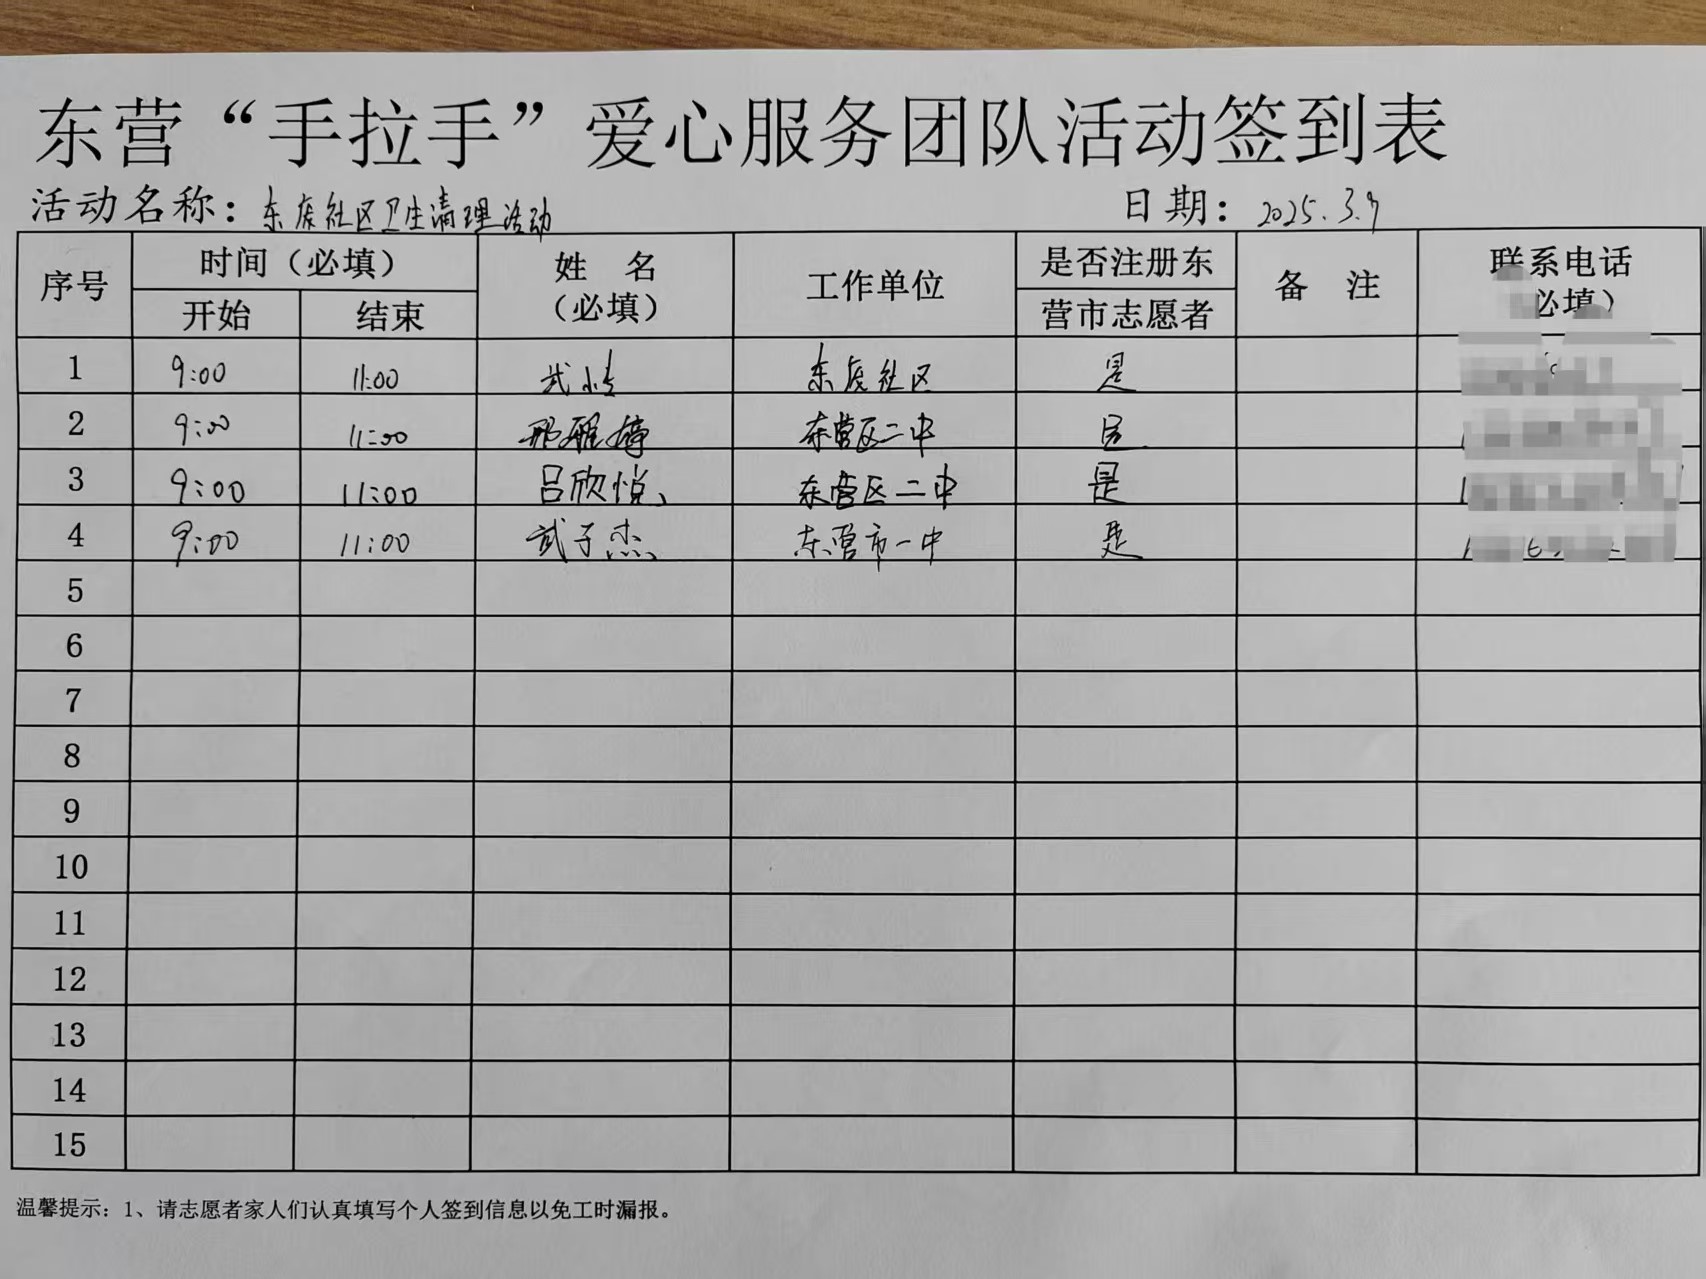 东营“手拉手”爱心服务团队活动签到表
活动名称：东庞社区卫生清理活动 日期：2025.3.7
序号 时间（必填） 姓 名（必填） 工作单位 是否注册东营市志愿者 备 注 联系电话 必填）
开始 结束
1 9:00 11:00 武 社区 是
2 9:00 11:00 邢雅婷 东营区二中 是
3 9:00 11:00 吕欣悦 东营区二中 是
4 9:00 11:00 武子杰 东营市一中 是
5
6
7
8
9
10
11
12
13
14
15
温馨提示：1、请志愿者家人们认真填写个人签到信息以免工时漏报。